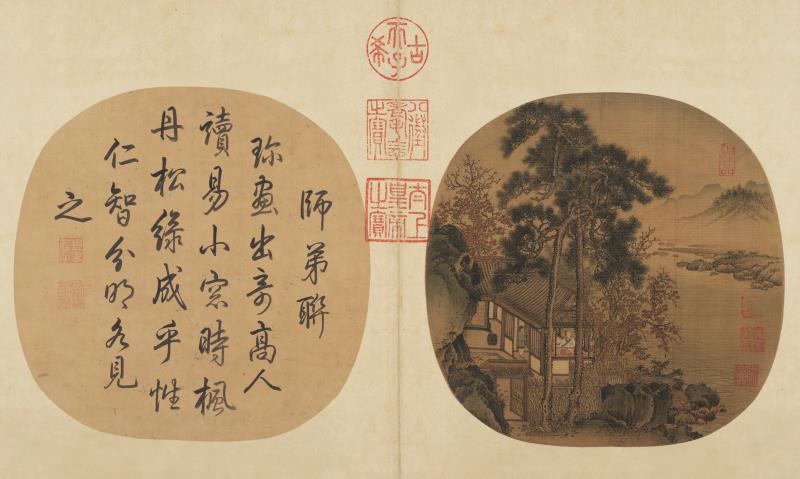 古希天子
八徵耄念之寶
太上皇帝之寶
師弟聯
珎畫出竒高人
讀易小窓時楓
丹松緑成乎性
仁智分明各見
之